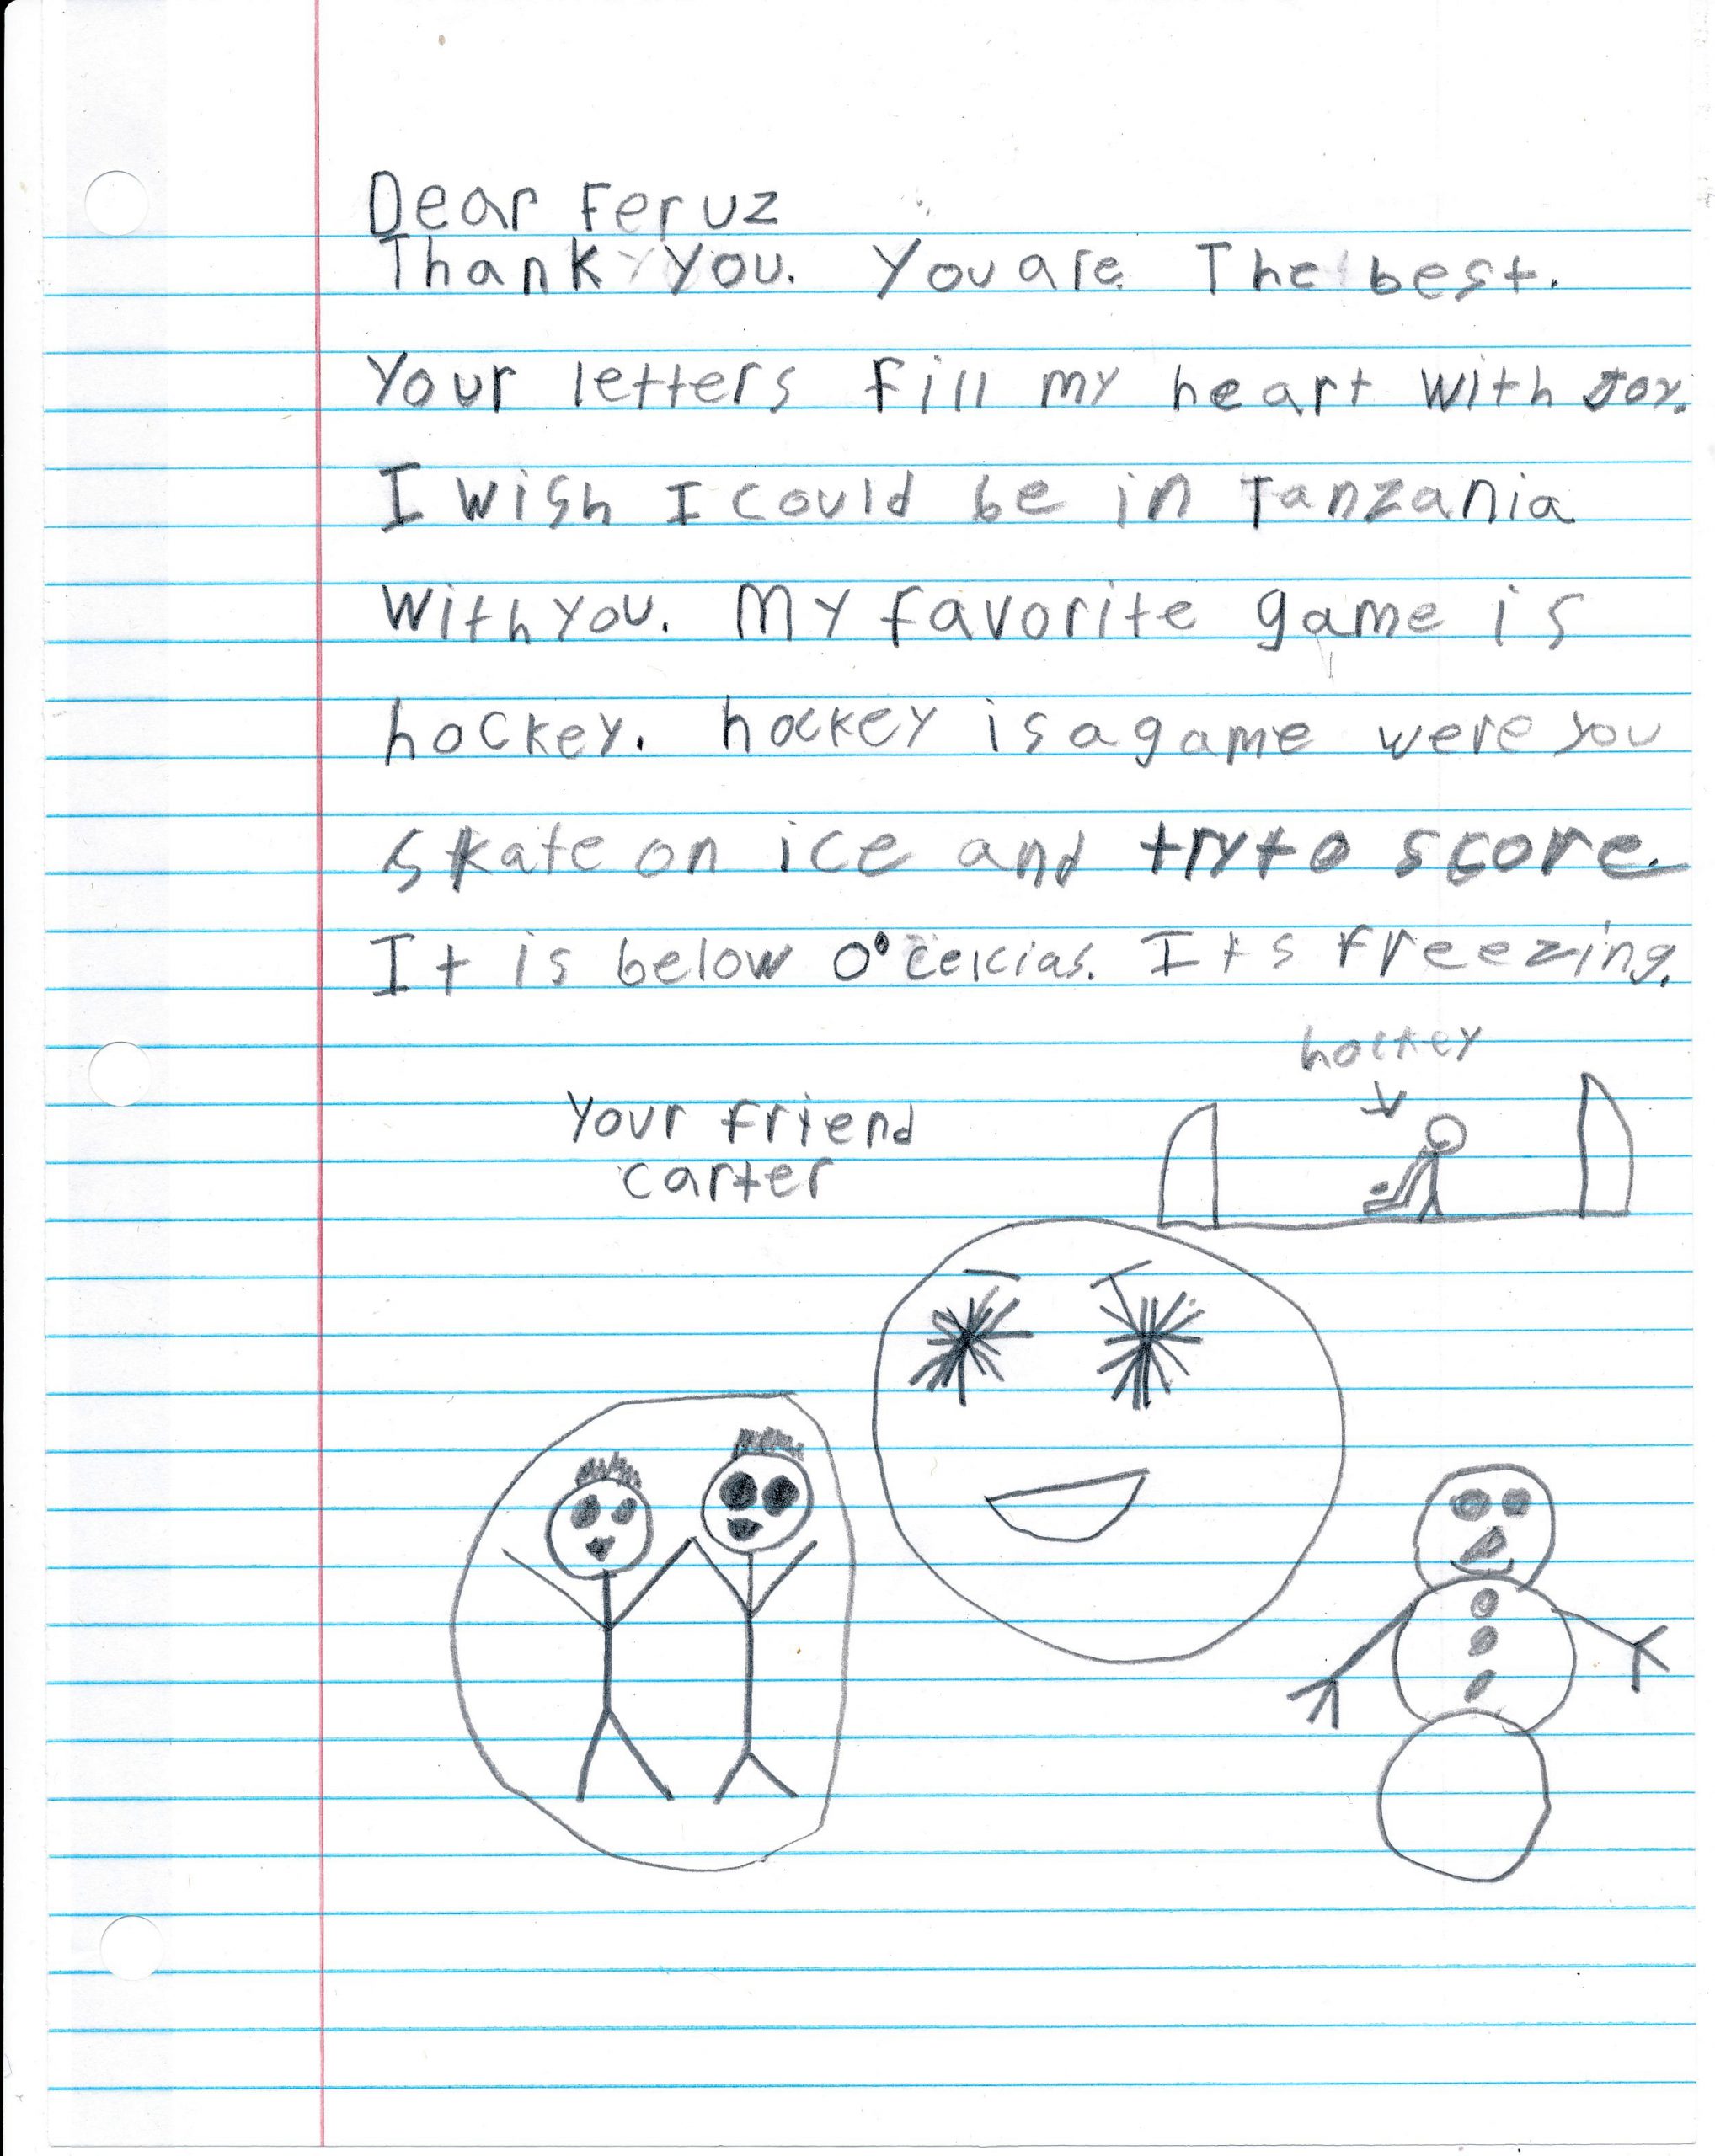 Dear Feruz
Thank you. You are The best.
Your letters fill my heart with Joy.
I wish I could be in Tanzania
with you. My favorite game is
hockey. hockey is a game were you
skate on ice and try to score.
It is below 0° celcias. Its freezing.
hockey
Your friend
carter